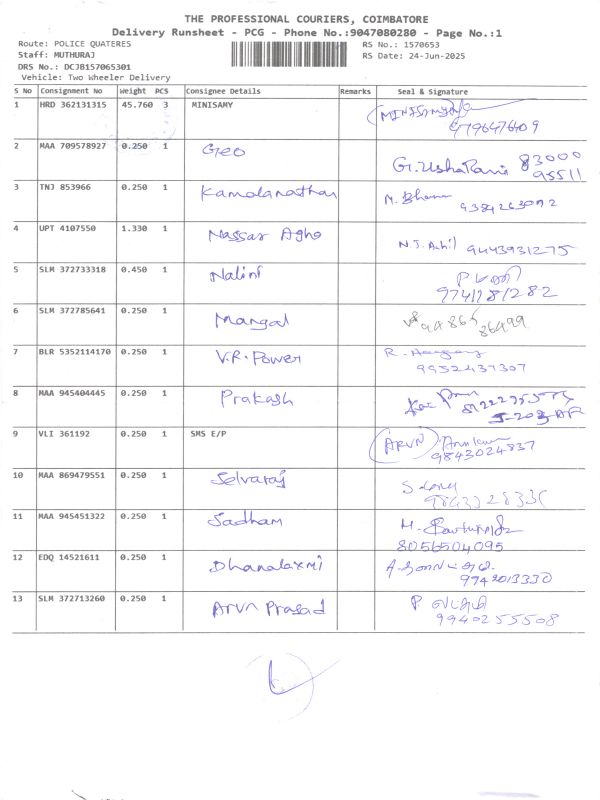 THE PROFESSIONAL COURIERS, COIMBATORE
Delivery Runsheet - PCG - Phone No.:9047080280 - Page No.:1
Route: POLICE QUATERES RS No.: 1570653
Staff: MUTHURAJ RS Date: 24-Jun-2025
DRS No.: DCJB157065301
Vehicle: Two Wheeler Delivery
S No Consignment No Weight PCS Consignee Details Remarks Seal & Signature
1 HRD 362131315 45.760 3 MINISAMY
2 MAA 709578927 0.250 1 Geo G. Usha Rani 83000
95511
3 TNJ 853966 0.250 1 Kamalanathan M. Bhanu
9384263092
4 UPT 4107550 1.330 1 Nassar Agho 9443931275
5 SLM 372733318 0.450 1 Nalini
9741181282
6 SLM 372785641 0.250 1 Mangal
7 BLR 5352114170 0.250 1 V.R. Power R.
9952437307
8 MAA 945404445 0.250 1 Prakash
9 VLI 361192 0.250 1 SMS E/P ARVN Arunkumar
9843024837
10 MAA 869479551 0.250 1 Selvaraj
11 MAA 945451322 0.250 1 Sadham
8056504095
12 EDQ 14521611 0.250 1 Dhanalaxmi
9942013330
13 SLM 372713260 0.250 1 Arun Prasad P
9940255508